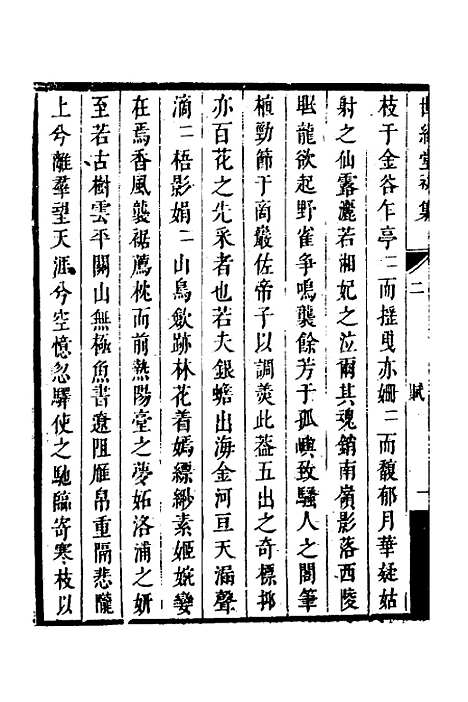 世經堂初集 二 賦 一
枝于金谷乍亭二而摇曳亦姍二而馥郁月華疑姑
射之仙露灑若湘妃之泣爾其魂銷南嶺影落西陵
眠龍欲起野雀爭鳴襲餘芳于孤嶼致騷人之閣筆
植勁節于商巖佐帝子以調羹此蓋五出之奇標抑
亦百花之先釆者也若夫銀蟾出海金河亘天漏聲
滴二梧影娟二山鳥歛跡林花着嫣縹緲素姬婉孌
在焉香風襲裾薦枕而前熱陽臺之夢妬洛浦之妍
至若古樹雲平關山無極魚書遼阻雁帛重隔悲隴
上兮離羣望天涯兮空憶忽驛使之馳臨寄寒枝以